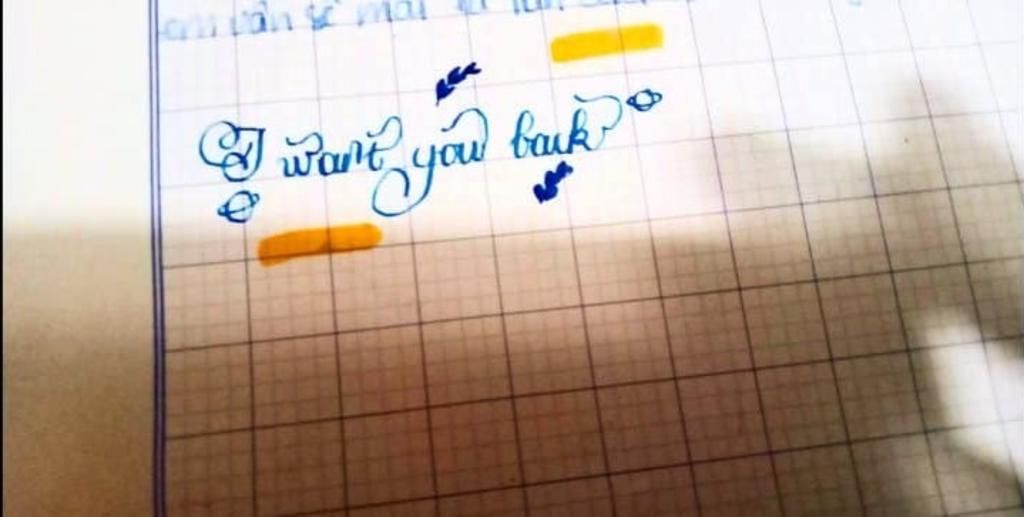 em vẫn sẽ mãi là
I want you back